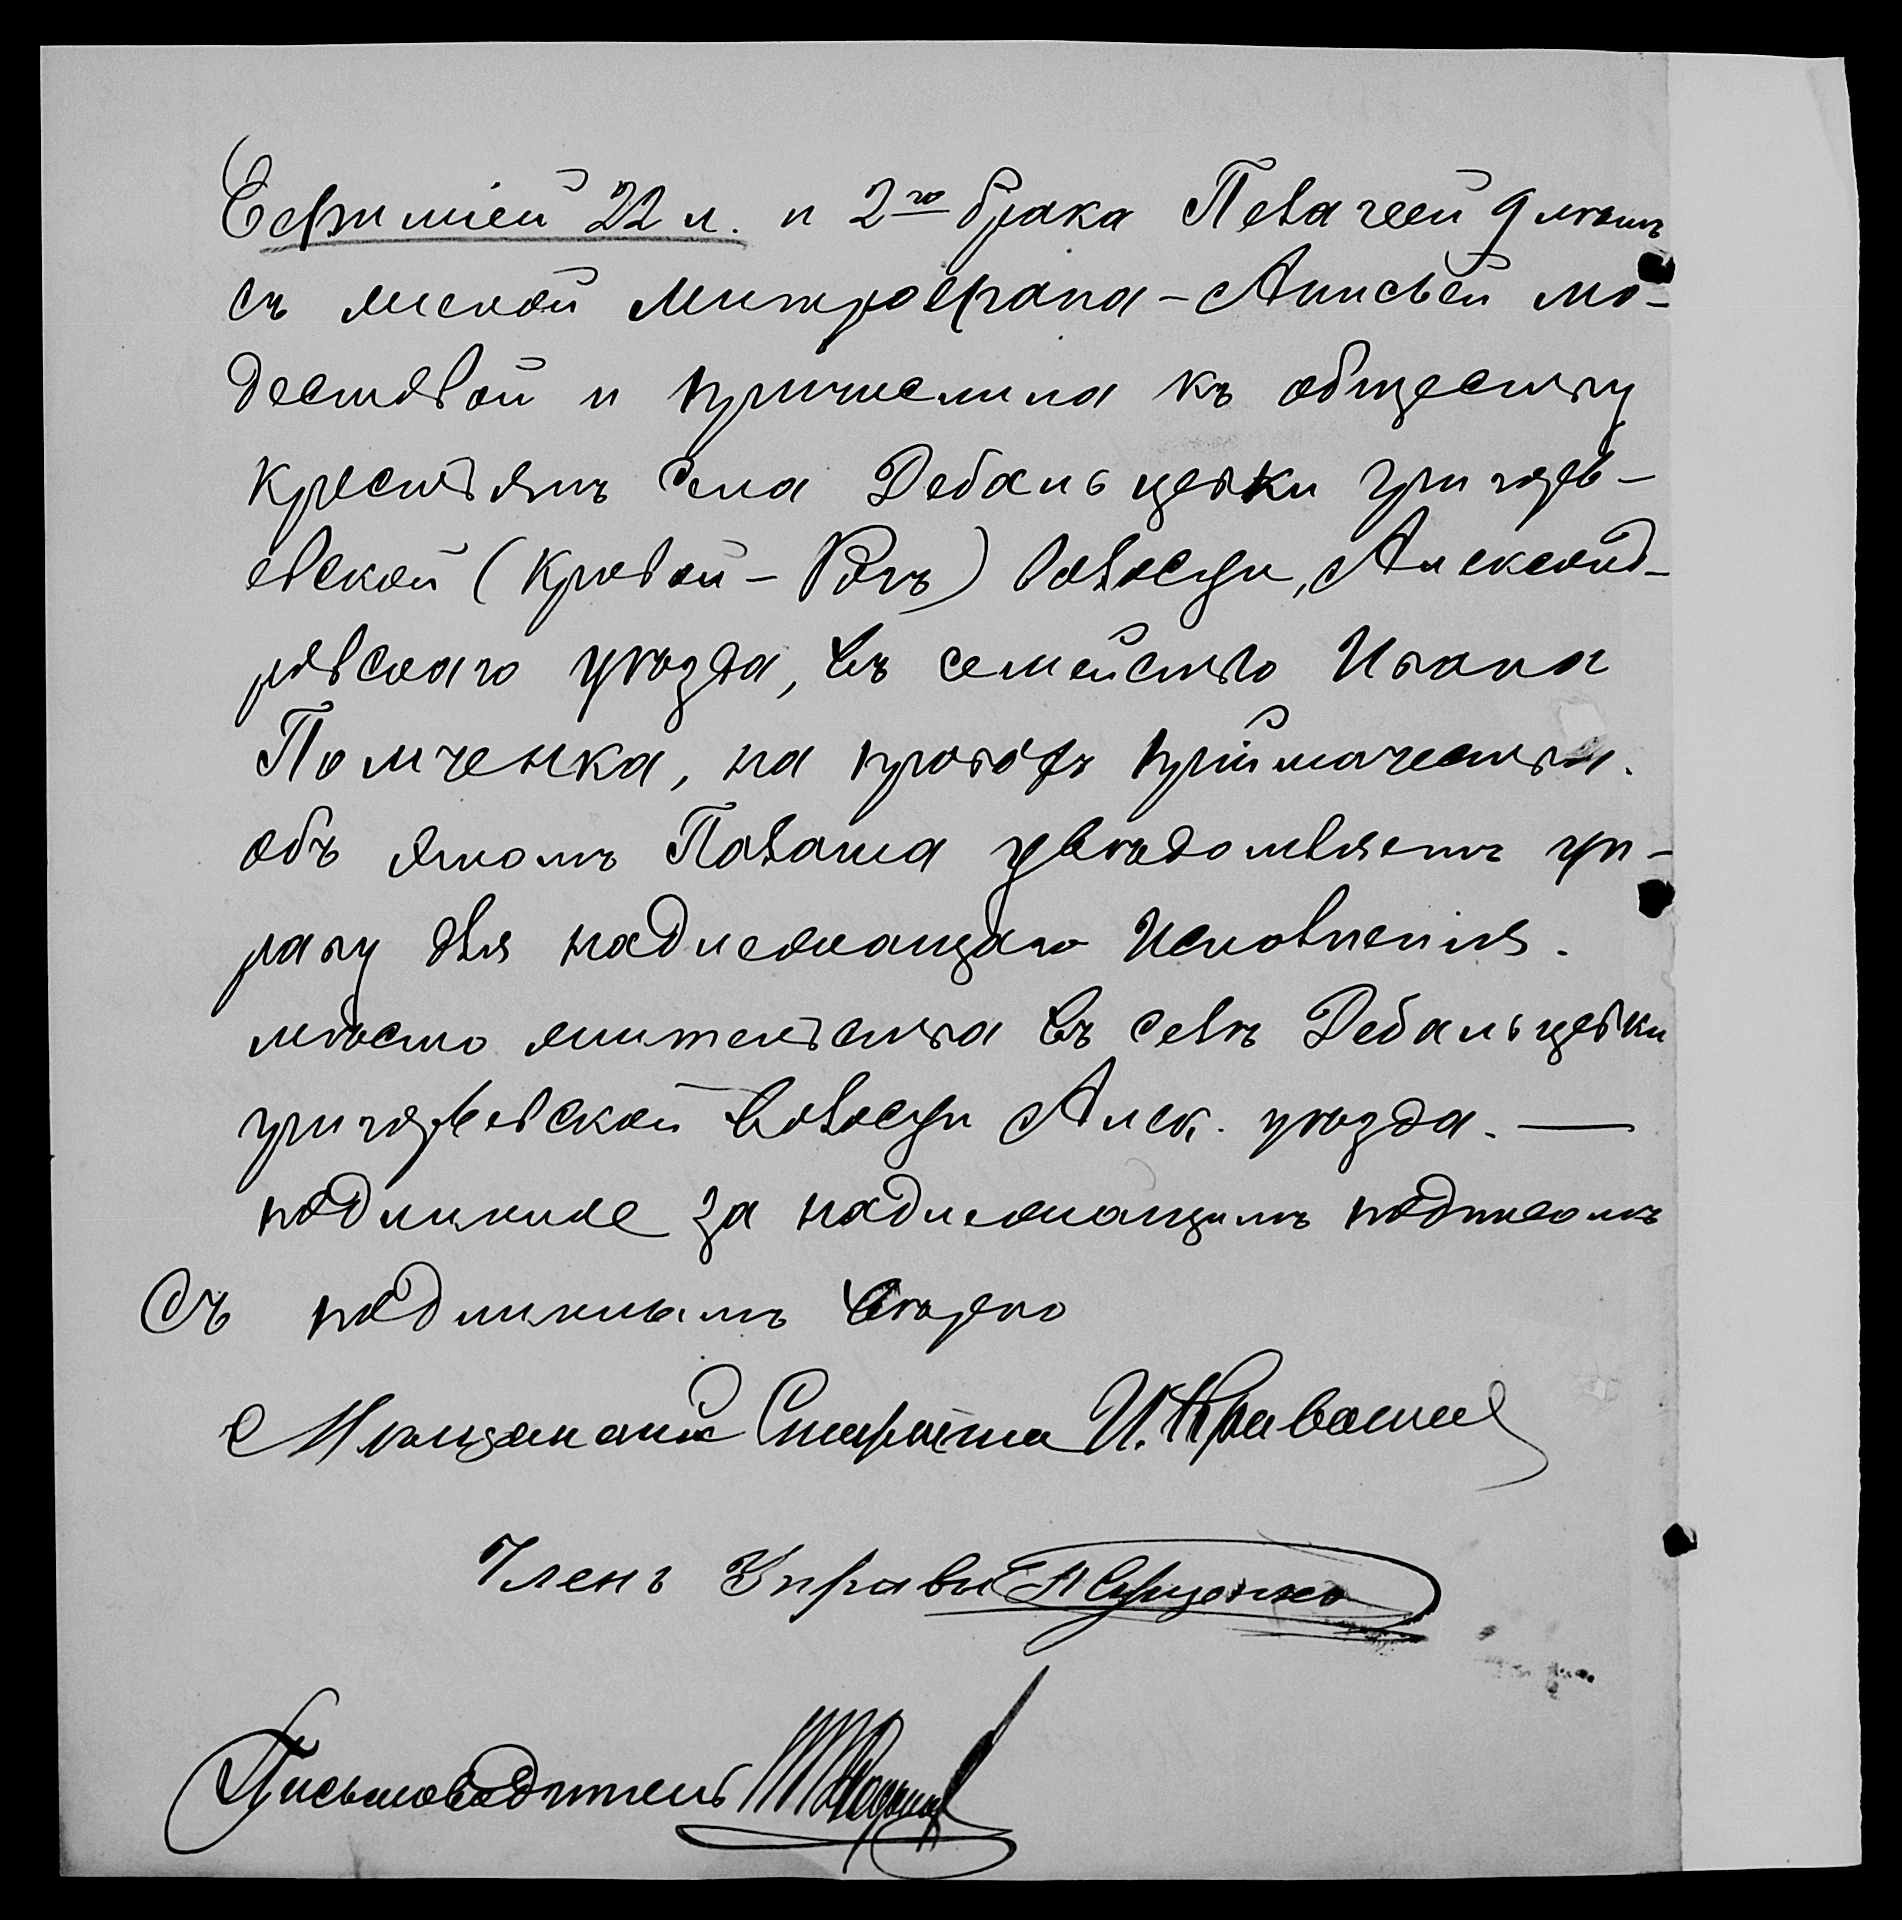 Ефиміей 22 л. и 2го брака Пелагеей 9 лѣтъ
съ женой Митрофана - Анисьей мо-
дестовой и причислила къ обществу
крестьянъ села Дебальцевки григорь-
евской (Кривой-Рогъ) волости, Александ-
ровскаго уѣзда, въ семейство Ивана
на правахъ пріймачества.
объ этомъ Палата увѣдомляетъ уп-
раву для надлежащаго исполненія.
мѣсто жительства въ селѣ Дебальцевки
григорьевской волости Алек. уѣзда. —
подлинное за надлежащимъ подписомъ
Съ подлиннымъ вѣрно
Мѣщанскій Староста И.
Членъ Управы
Письмоводитель